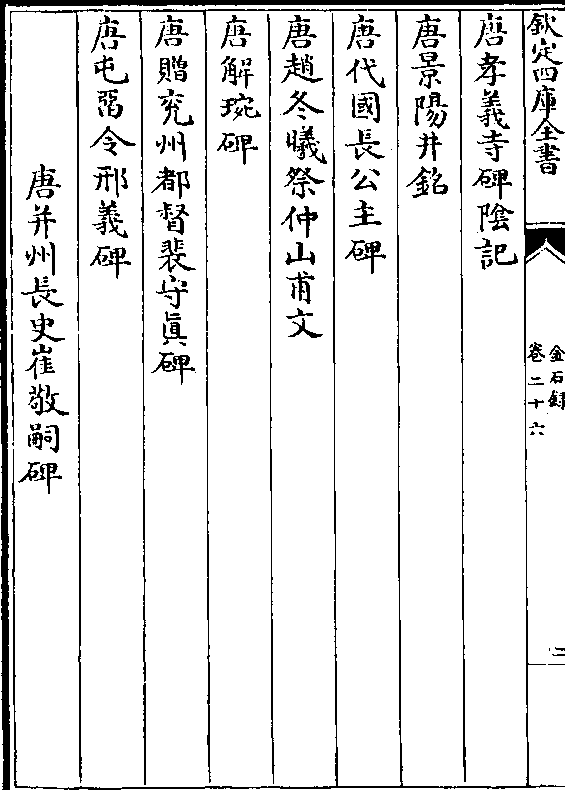 欽定四庫全書
金石録
卷二十六
二
唐孝義寺碑陰記
唐景陽井銘
唐代國長公主碑
唐趙冬曦祭仲山甫文
唐解琬碑
唐贈兖州都督裴守眞碑
唐屯留令邢義碑
唐并州長史崔敬嗣碑